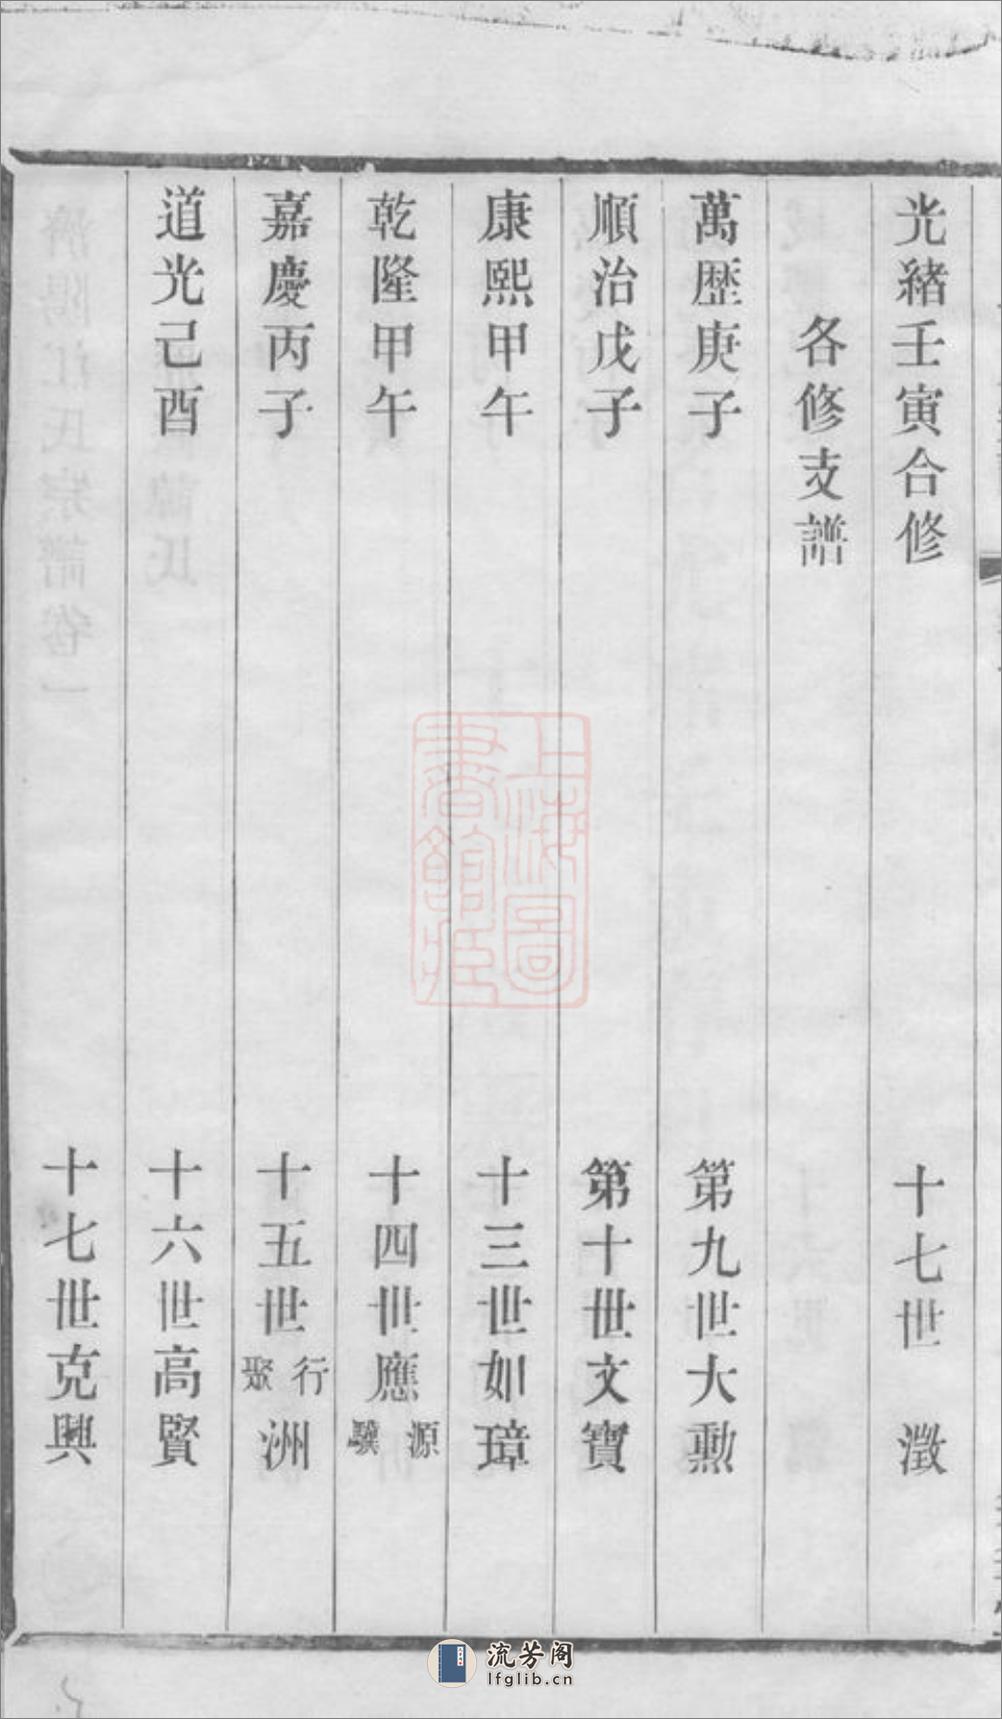 光緒壬寅合修　十七世　澂
各修支譜
萬歷庚子　第九世大勲
順治戊子　第十世文寶
康熙甲午　十三世如璋
乾隆甲午　十四世應源驥
嘉慶丙子　十五世行聚洲
道光己酉　十六世高賢
十七世克興
上海圖書館藏
流芳阁
lfglib.cn